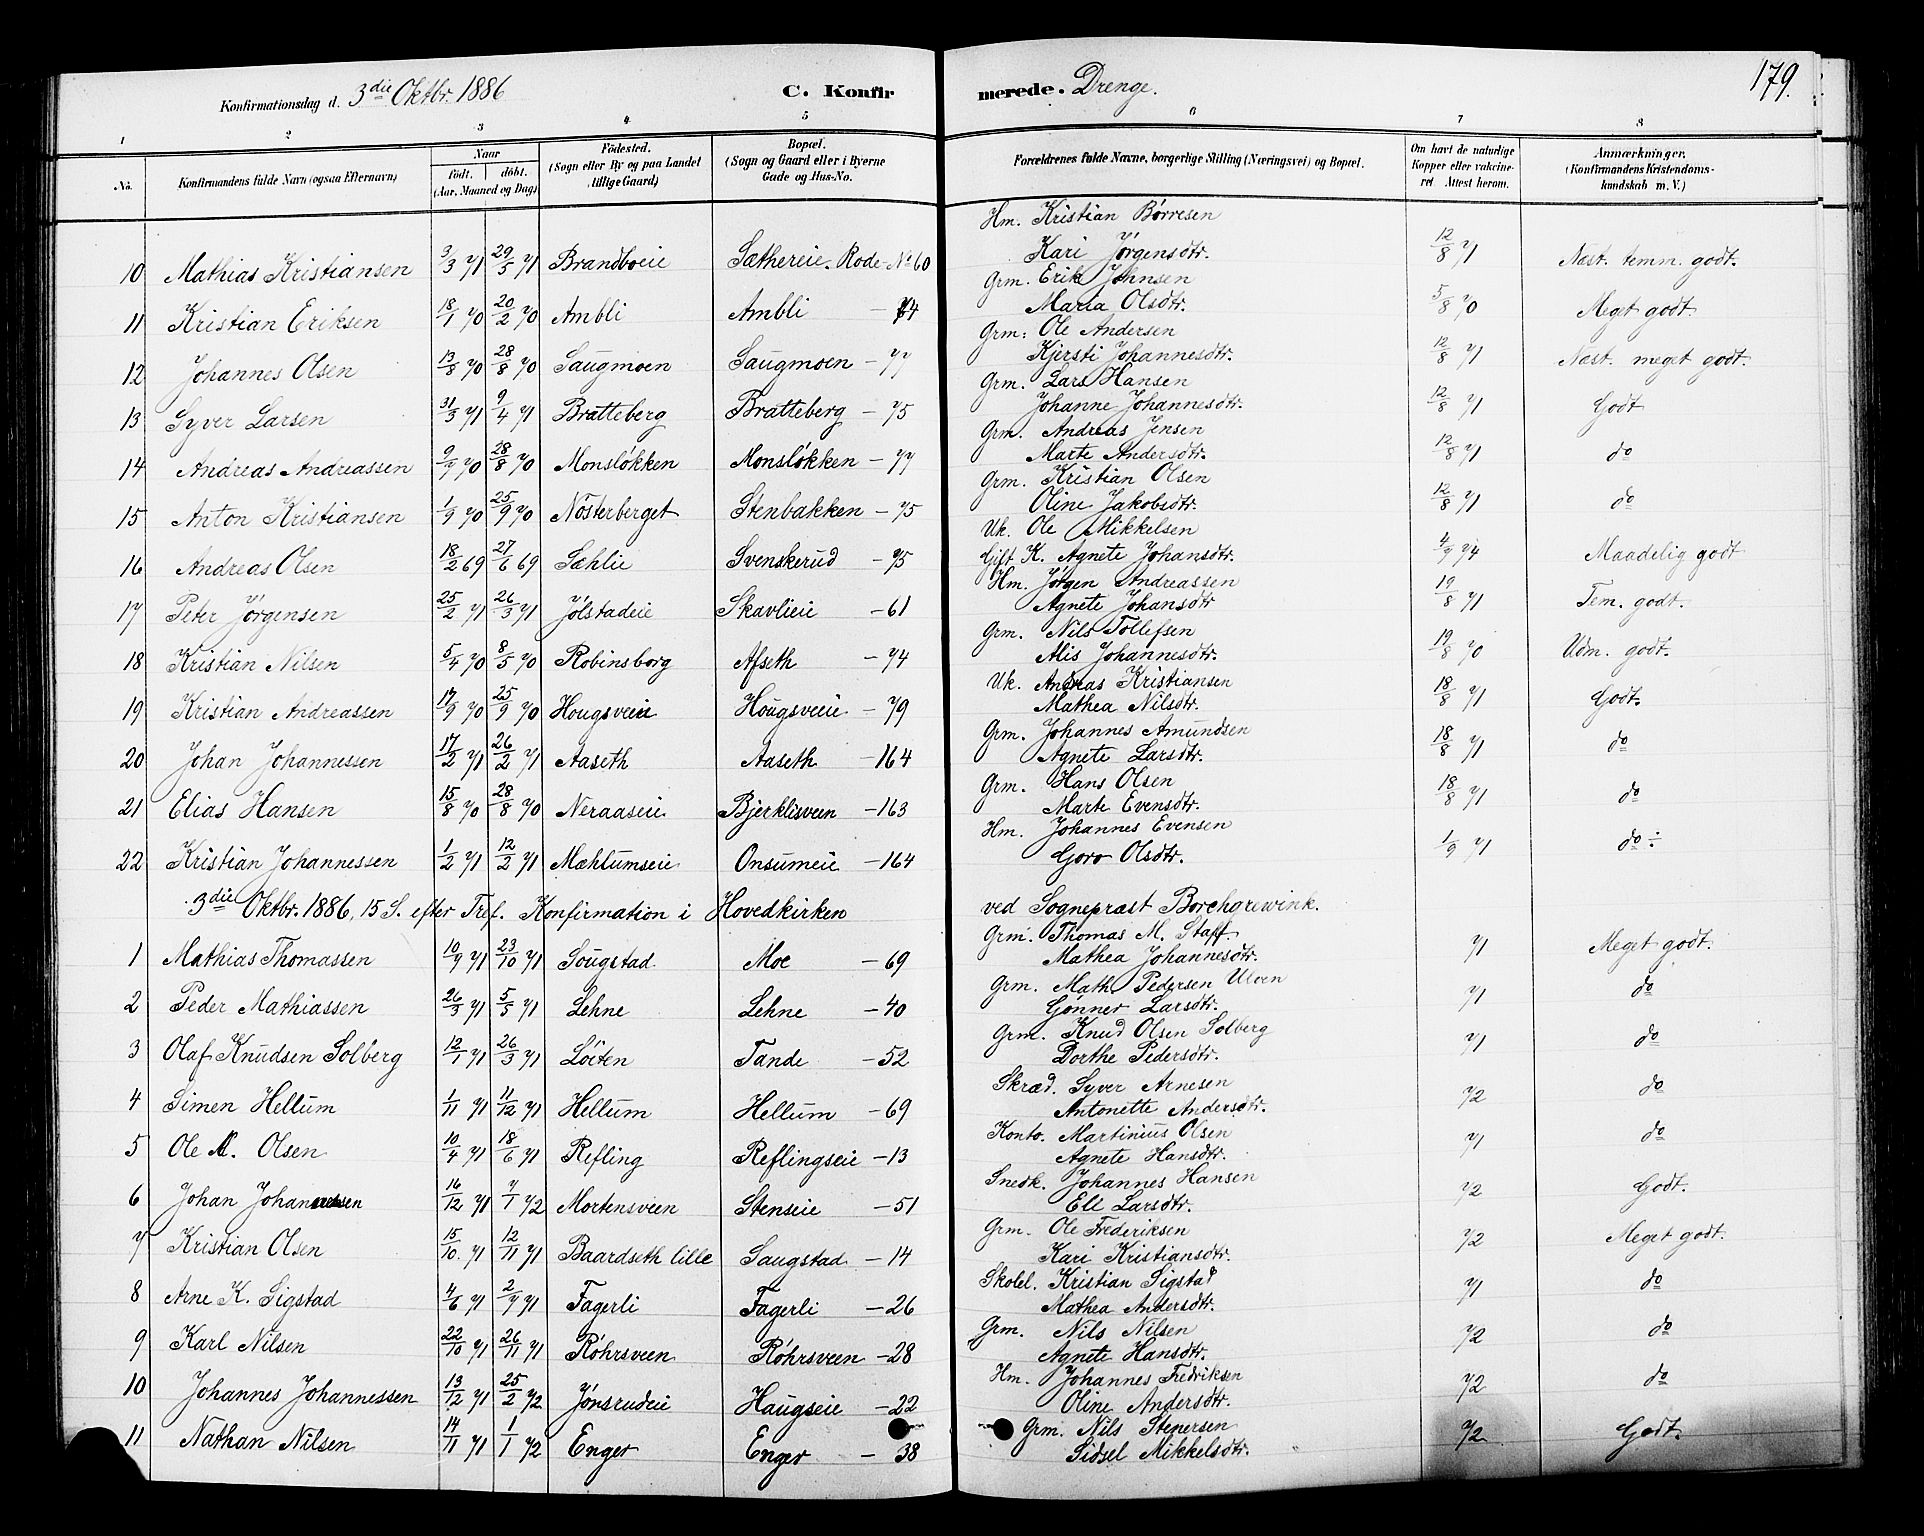 Konfirmationsdag d. 3die Oktbr. 1886 C. Konfirmerede. Drenge. 179.
1 2 3 4 5 6 7 8
No. Konfirmandens fulde Navn (ogsaa Efternavn) Naar født. døbt. (Aar, Maaned og Dag) Fødested. (Sogn eller By og paa Landet tillige Gaard) Bopæl. (Sogn og Gaard eller i Byerne Gade og Hus-No. Forældrenes fulde Navne, borgerlige Stilling (Næringsvei) og Bopæl. Om havt de naturlige Kopper eller vakcineret Attest herom. Anmærkninger. (Konfirmandens Kristendomskundskab m. V.)
10 Mathias Kristiansen 3/3 71 29/5 71 Brandboeie Sæthereie. Rode No 60 Hm. Kristian Børresen Kari Jørgensdtr. 12/8 71 Næst. temm. godt.
11 Kristian Eriksen 18/1 70 20/2 70 Ambli Ambli - 74 Grm. Erik Johnsen Maria Olsdtr. 5/8 70 Meget godt
12 Johannes Olsen 13/8 70 28/8 70 Saugmoen Saugmoen - 77 Grm. Ole Andersen Kjersti Johannesdtr. 12/8 71 Næst. meget godt.
13 Syver Larsen 31/3 71 9/4 71 Bratteberg Bratteberg - 75 Grm. Lars Hansen Johanne Johannesdtr. 12/8 71 Godt
14 Andreas Andreassen 9/7 70 28/8 70 Monsløkken Monsløkken - 77 Grm. Andreas Jensen Marte Andersdtr. 12/8 71 do
15 Anton Kristiansen 1/9 70 25/9 70 Nøsterberget Stenbakken - 75 Grm. Kristian Olsen Oline Jakobsdtr. 12/8 71 do
16 Andreas Olsen 18/2 69 27/6 69 Sæhlie Svenskerud - 75 Uk. Ole Mikkelsen Gift K. Agnete Johansdtr. 4/9 74 Maadelig godt
17 Peter Jørgensen 25/2 71 26/3 71 Jølstadeie Skavlieie - 61 Hm. Jørgen Andreassen Agnete Johansdtr 19/8 71 Tem. godt.
18 Kristian Nilsen 5/4 70 8/5 70 Robinsborg Afseth - 74 Grm. Nils Tollefsen Alis Johannesdtr. 19/8 70 Udm. godt.
19 Kristian Andreassen 17/9 70 25/9 70 Hougsveie Hougsveie - 79 Uk. Andreas Kristiansen Mathea Nilsdtr. 18/8 71 Godt.
20 Johan Johannessen 17/2 71 26/2 71 Aaseth Aaseth - 164 Grm. Johannes Amundsen Agnete Larsdtr. 18/8 71 do
21 Elias Hansen 15/8 70 28/8 70 Neraaseie Bjerklisveen - 163 Grm. Hans Olsen Marte Evensdtr. 18/8 71 do
22 Kristian Johannessen 1/2 71 12/2 71 Mæhlumseie Onsumeie - 164 Hm. Johannes Evensen Goro Olsdtr. 1/9 71 do ÷
3die Oktbr. 1886, 15 S. efter Tref. Konfirmation i Hovedkirken ved Sognepræst Borchgrewink.
1 Mathias Thomassen 10/9 71 23/10 71 Sougstad Moe - 69 Grm. Thomas M. Staff. Mathea Johannesdtr. 71 Meget godt.
2 Peder Mathiassen 26/3 71 5/5 71 Lehne Lehne - 40 Grm. Math. Pedersen Ulven Gønner Larsdtr. 71 do
3 Olaf Knudsen Solberg 12/1 71 26/3 71 Løiten Tande - 52 Grm. Knud Olsen Solberg Dorthe Pedersdtr. 71 do
4 Simen Hellum 1/11 71 11/12 71 Hellum Hellum - 69 Skræd. Syver Arnesen Antonette Andersdtr. 72 do
5 Ole A. Olsen 10/4 71 18/6 71 Refling Reflingseie - 13 Konto. Martinius Olsen Agnete Hansdtr. 71 do
6 Johan Johannessen 16/12 71 7/1 72 Mortensveen Stenseie - 51 Snedk. Johannes Hansen Eli Larsdtr. 72 Godt.
7 Kristian Olsen 15/10. 71 12/11 71 Baardseth lille Saugstad - 14 Grm. Ole Frederiksen Kari Kristiansdtr. 72 Meget godt.
8 Arne K. Sigstad 4/6 71 2/7 71 Fagerli Fagerli - 26 Skolel. Kristian Sigstad Mathea Andersdtr. 71 do
9 Karl Nilsen 22/10 71 26/11 71 Røhrsveen Røhrsveen - 28 Grm. Nils Nilsen Agnete Hansdtr. 72 do
10 Johannes Johannessen 13/12 71 25/2 72 Jønsrudeie Haugseie - 22 Hm. Johannes Fredriksen Oline Andersdtr. 72 do
11 Nathan Nilsen 14/11 71 1/1 72 Enger Enger - 38 Grm. Nils Stenersen Sidsel Mikkelsdtr. 72 Godt.